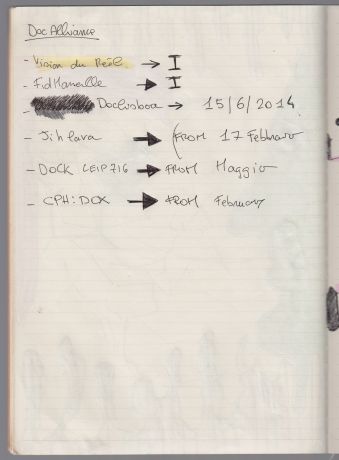 Doc Alliance
- Vision du Réél → I
- FidMarseille → I
- Doclisboa → 15/6/2014
- Jihlava → (FROM 17 Febbraio
- DOCK LEIPZIG → FROM Maggio
- CPH:DOX → FROM February